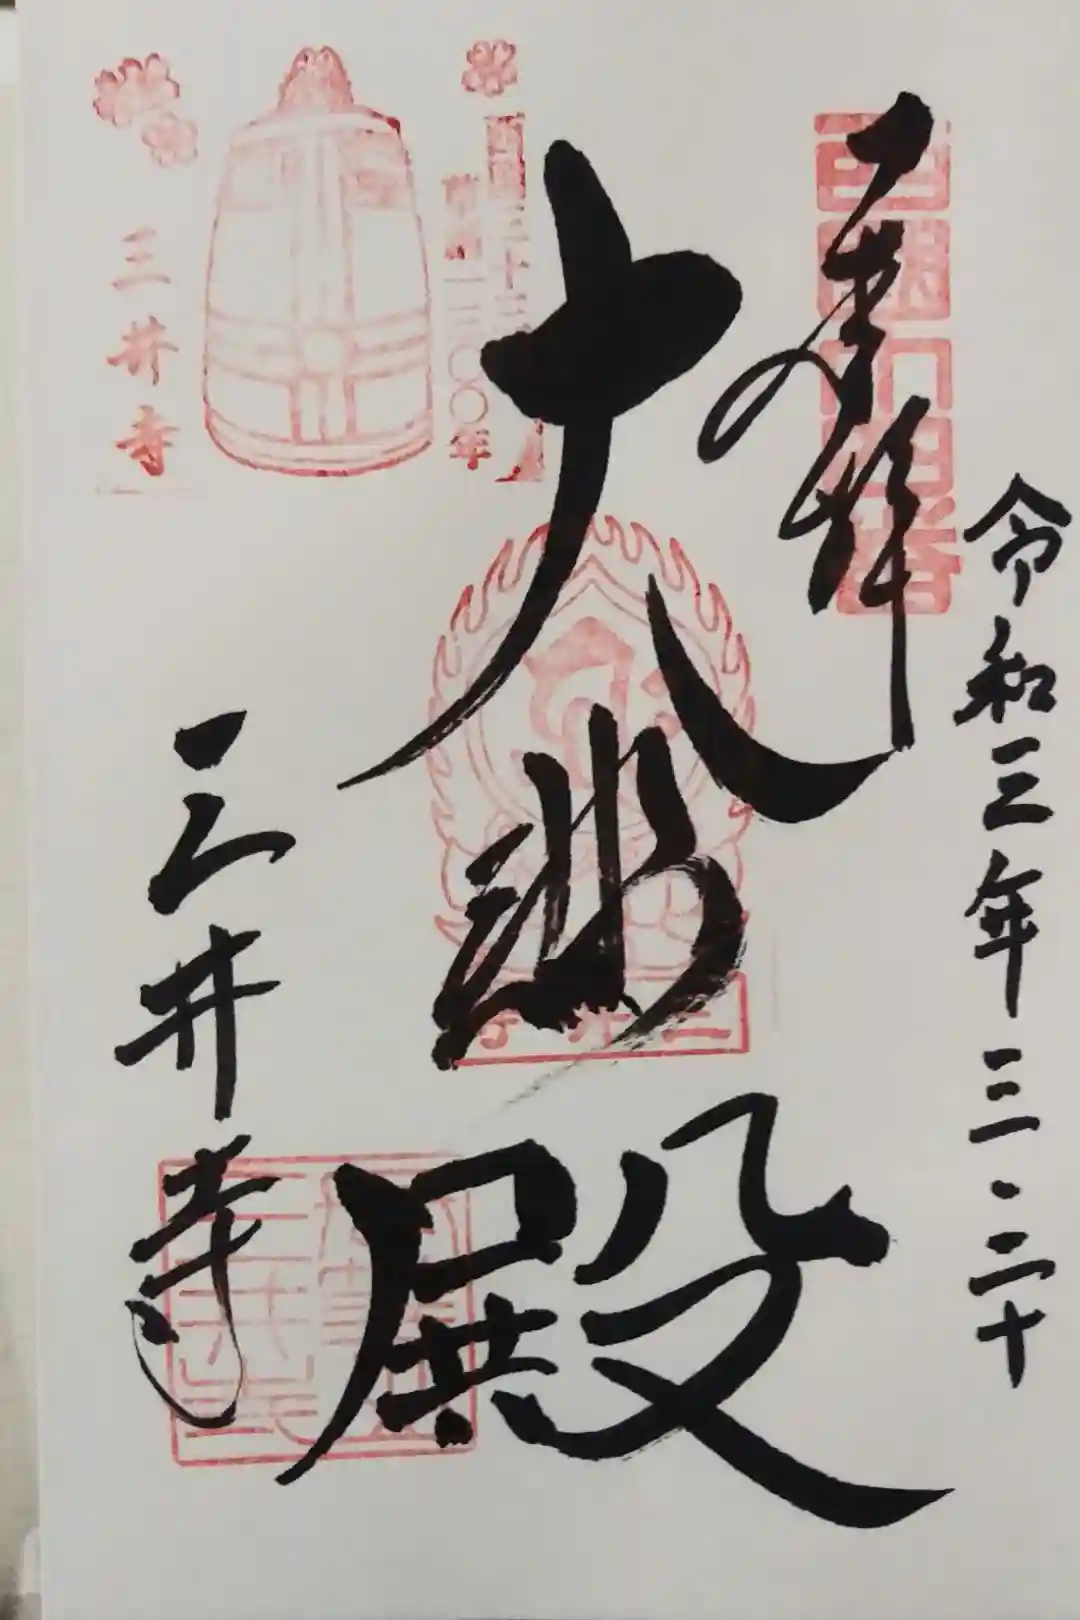 令和三年三・二十
奉拝
西国十四番
大悲殿
三井寺
三井寺
西国三十三所
草創一三〇〇年
三井寺